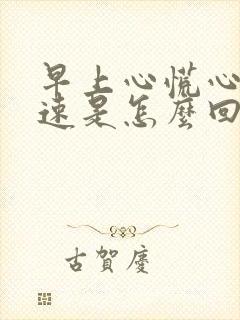 早上心慌心
速是怎麼回
古賀慶